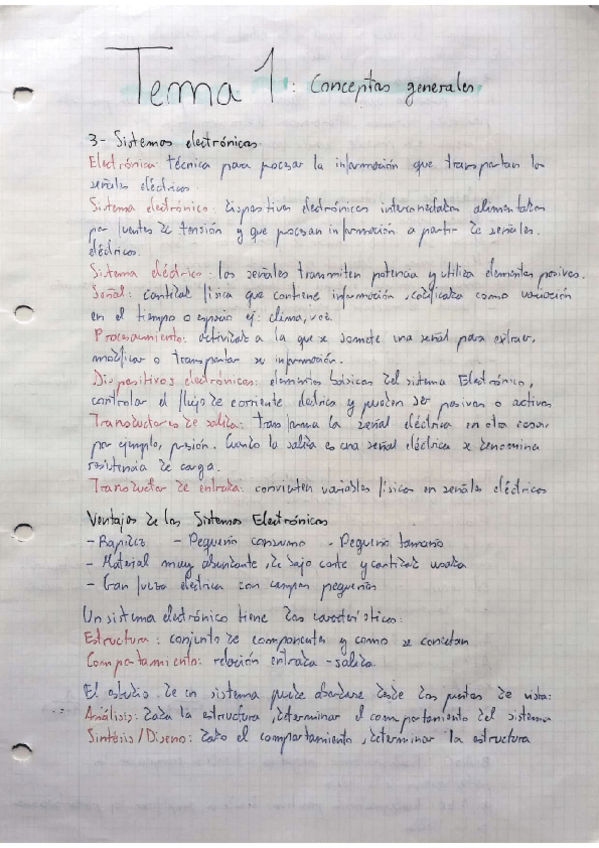 Tema 1: Conceptos generales
3- Sistemas electrónicos
Electrónica: técnica para procesar la información que transportan las
señales eléctricas
Sistema electrónico: dispositivos electrónicos interconectados alimentados
por fuentes de tensión y que procesan información a partir de señales
eléctricos.
Sistema eléctrico: las señales transmiten potencia y utiliza elementos pasivos.
Señal: cantidad física que contiene información, codificada como variación
en el tiempo o espacio ej: clima, voz.
Procesamiento: actividad a la que se somete una señal para extraer,
modificar o transportar su información.
Dispositivos electrónicos: elementos básicos del sistema Electrónico,
controlar el flujo de corriente eléctrica y pueden ser pasivos o activos
Transductores de salida: transforma la señal eléctrica en otra cosa,
por ejemplo, presión. Cuando la salida es una señal eléctrica se denomina
resistencia de carga.
Transductor de entrada: convierten variables físicas en señales eléctricas
Ventajas de los Sistemas Electrónicos
- Rapidez - Pequeño consumo - Pequeño tamaño
- Material muy abundante, de bajo coste y cantidad usada
- Gran fuerza eléctrica con campos pequeños
Un sistema electrónico tiene dos características:
Estructura: conjunto de componentes y como se conectan
Comportamiento: relación entrada - salida
El estudio de un sistema puede abordarse desde dos puntos de vista:
Análisis: dada la estructura, determinar el comportamiento del sistema
Síntesis/Diseño: dado el comportamiento, determinar la estructura